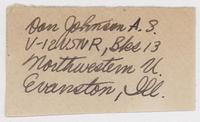 Don Johnson A.S.
V-12 USNR, Bks 13
Northwestern U.
Evanston, Ill.